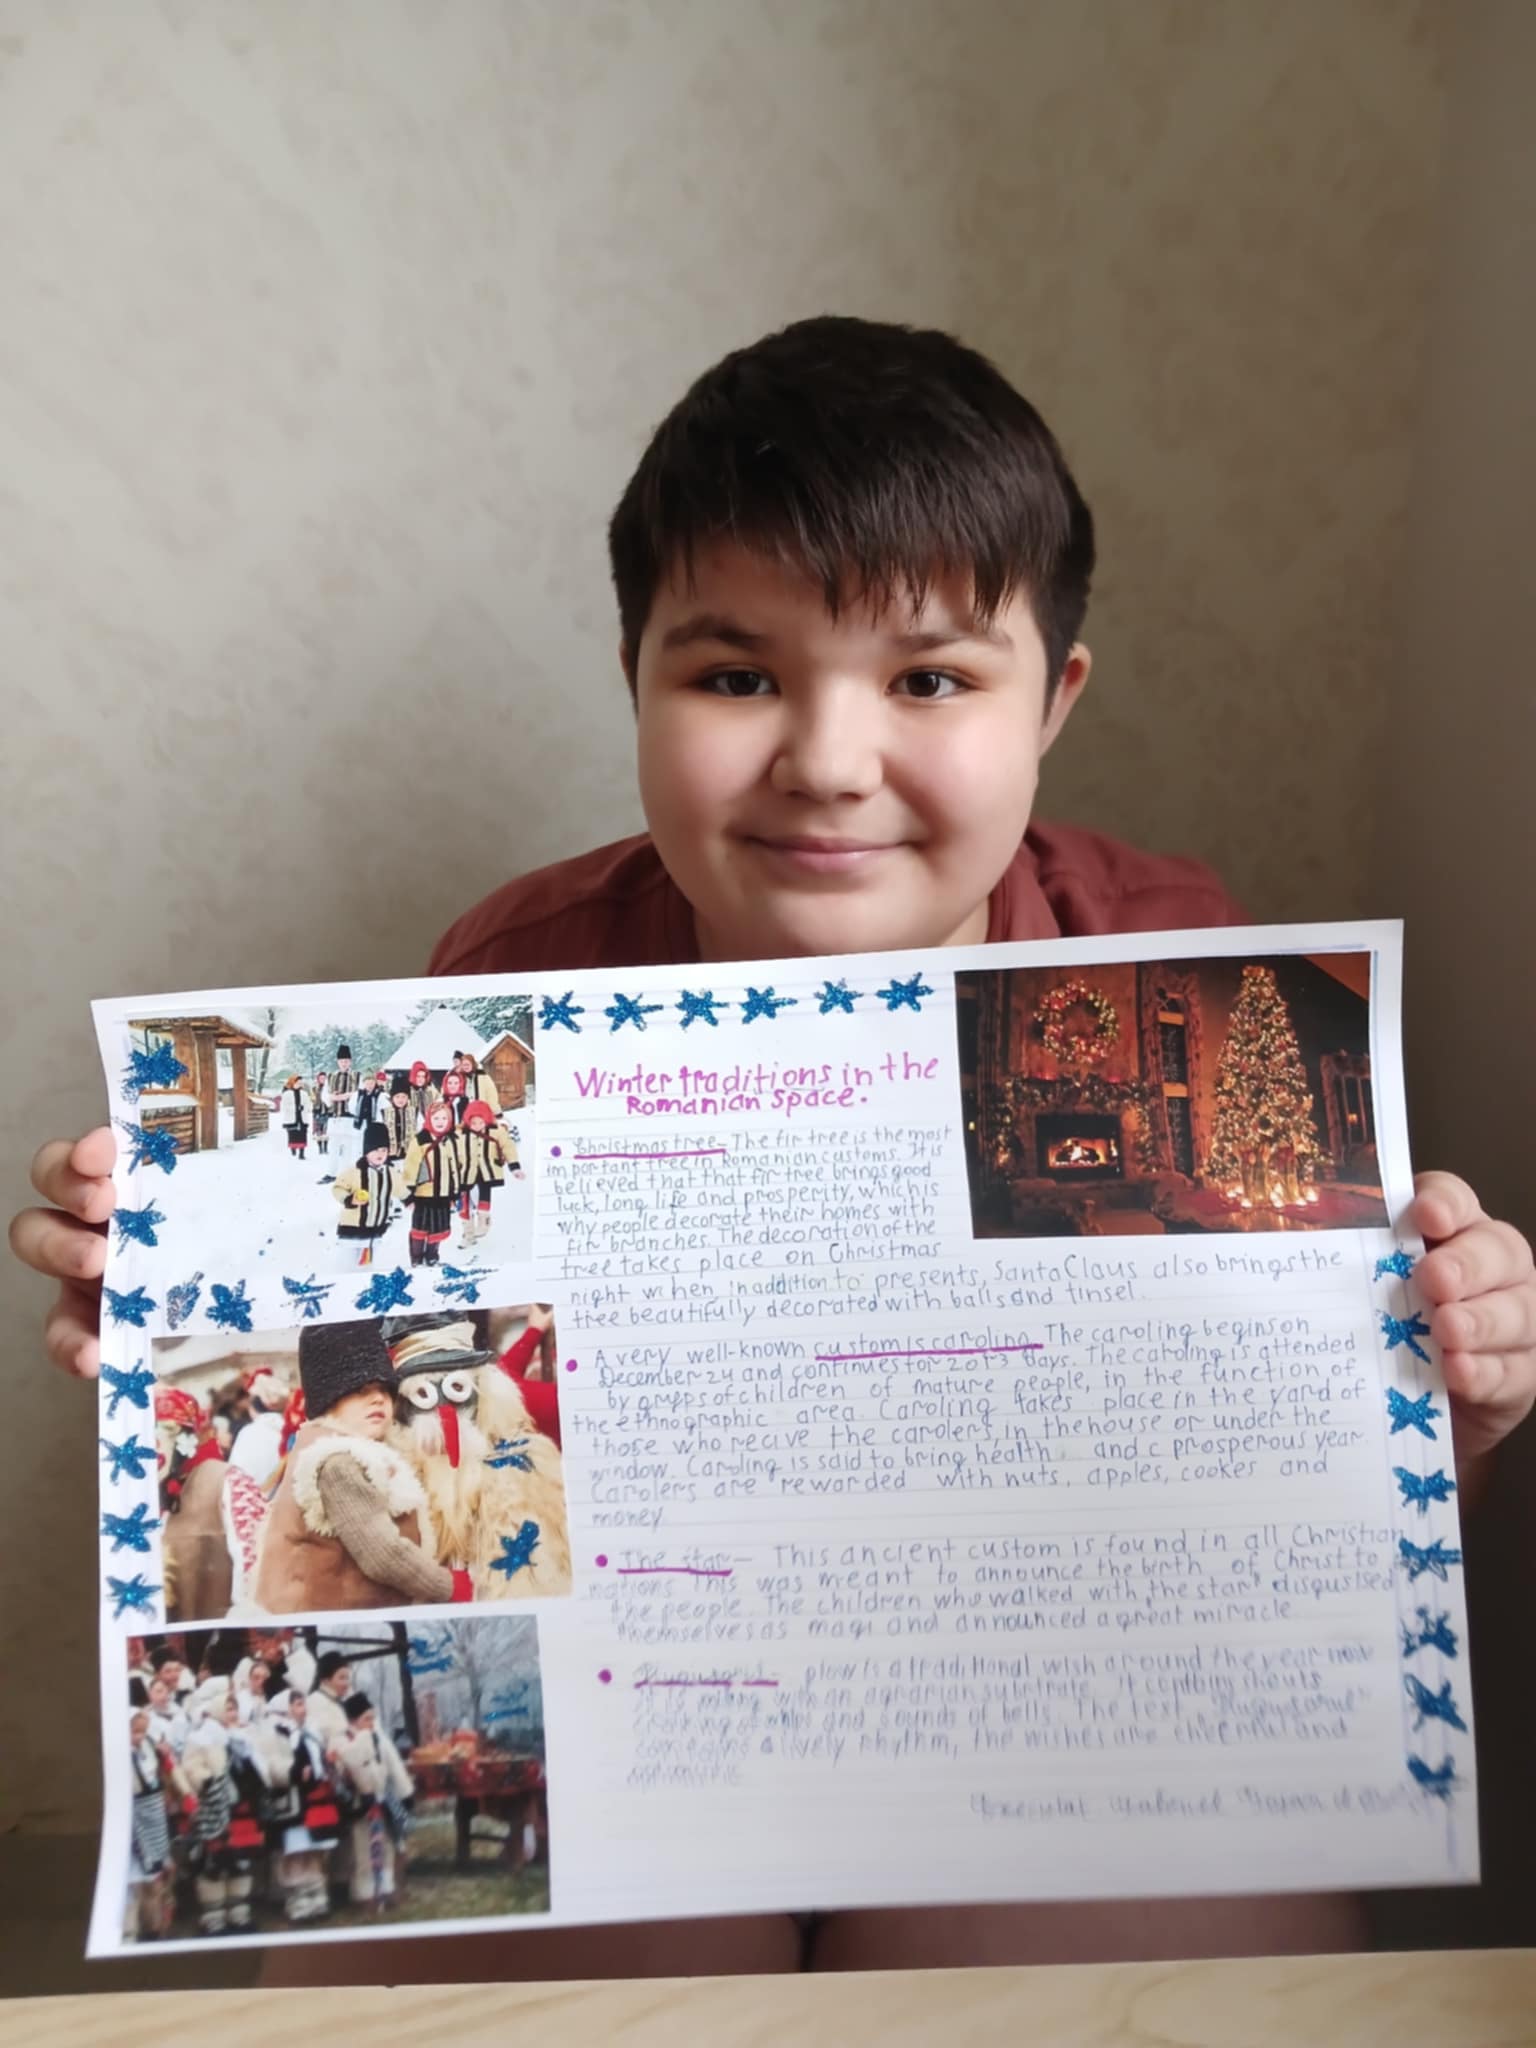 Winter traditions in the
Romanian space.
• Christmas tree - The fir tree is the most
important tree in Romanian customs. It is
believed that that fir tree brings good
luck, long life and prosperity, which is
why people decorate their homes with
fir branches. The decoration of the
tree takes place on Christmas
night when, in addition to presents, Santa Claus also brings the
tree beautifully decorated with balls and tinsel.
• A very well-known custom is caroling. The caroling begins on
December 24 and continues for 2 or 3 days. The caroling is attended
by of children of mature people, in the function of
the ethnographic area. Caroling takes place in the yard of
those who recive the carolers, in the house or under the
window. Caroling is said to bring health and prosperous year.
Carolers are rewarded with nuts, apples, cookes and
money
• The star - This ancient custom is found in all Christian
nations. This was meant to announce the birth of Christ to
the people. The children who walked with "the star" disguised
themselves as magi and announced a great miracle
• - plow is a traditional wish around the year
It is with an agrarian substrate. It shouts
of and sounds of bells. The text
a lively rhythm, the wishes are cheerful and